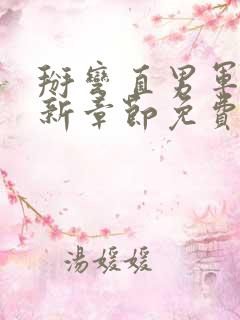 掰彎直男軍
新章節免費
湯媛媛